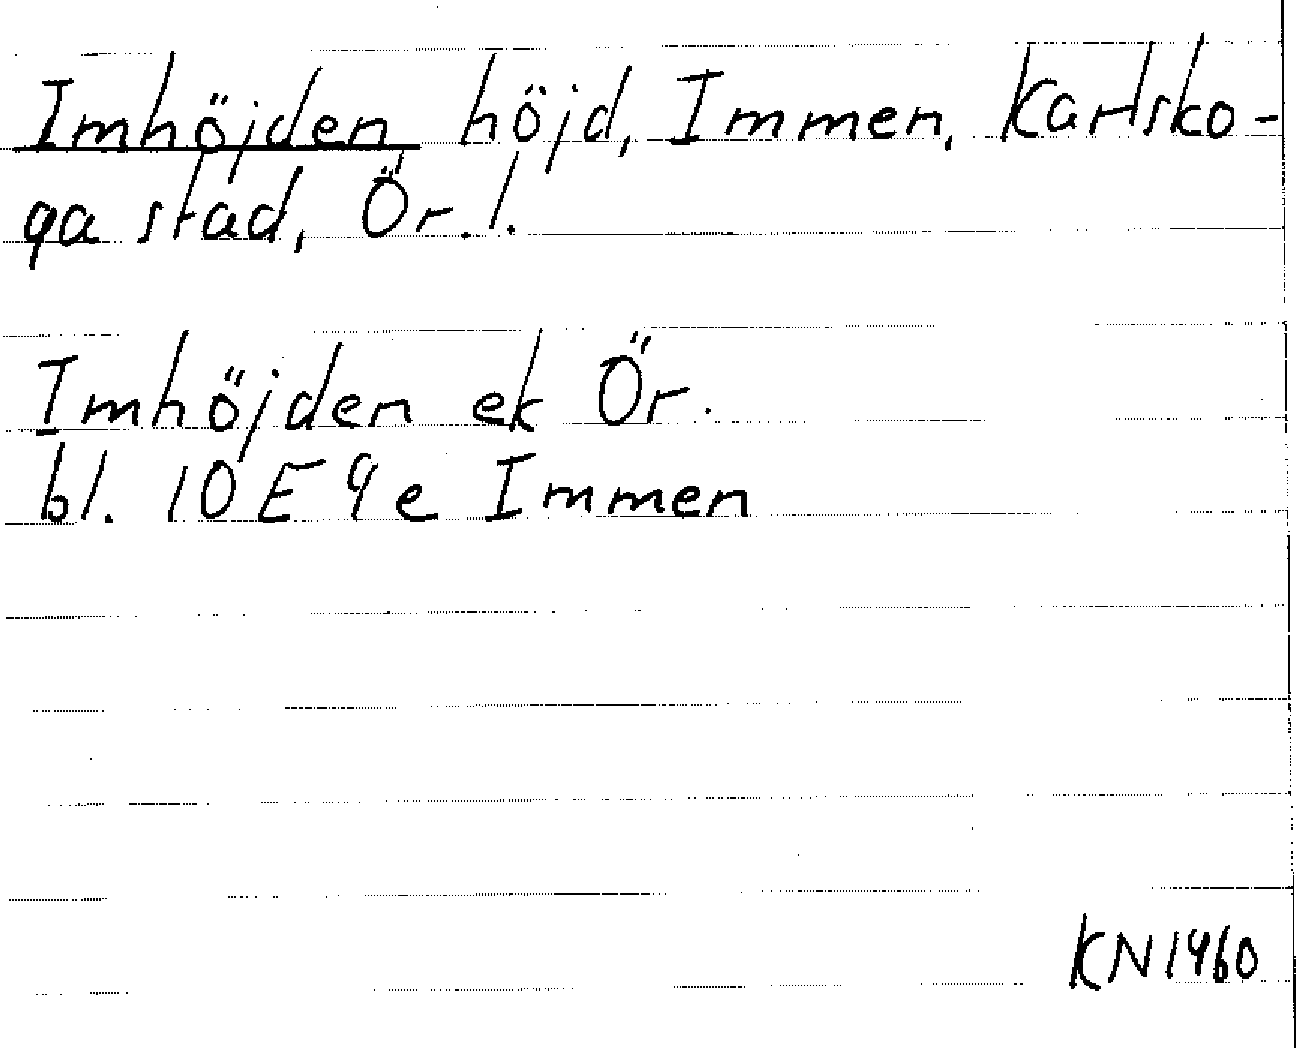 Imhöjden höjd, Immen, Karlsko-
ga stad, Ör. l.
Imhöjden ek Ör.
bl. 10 E 9e Immen
KN1960